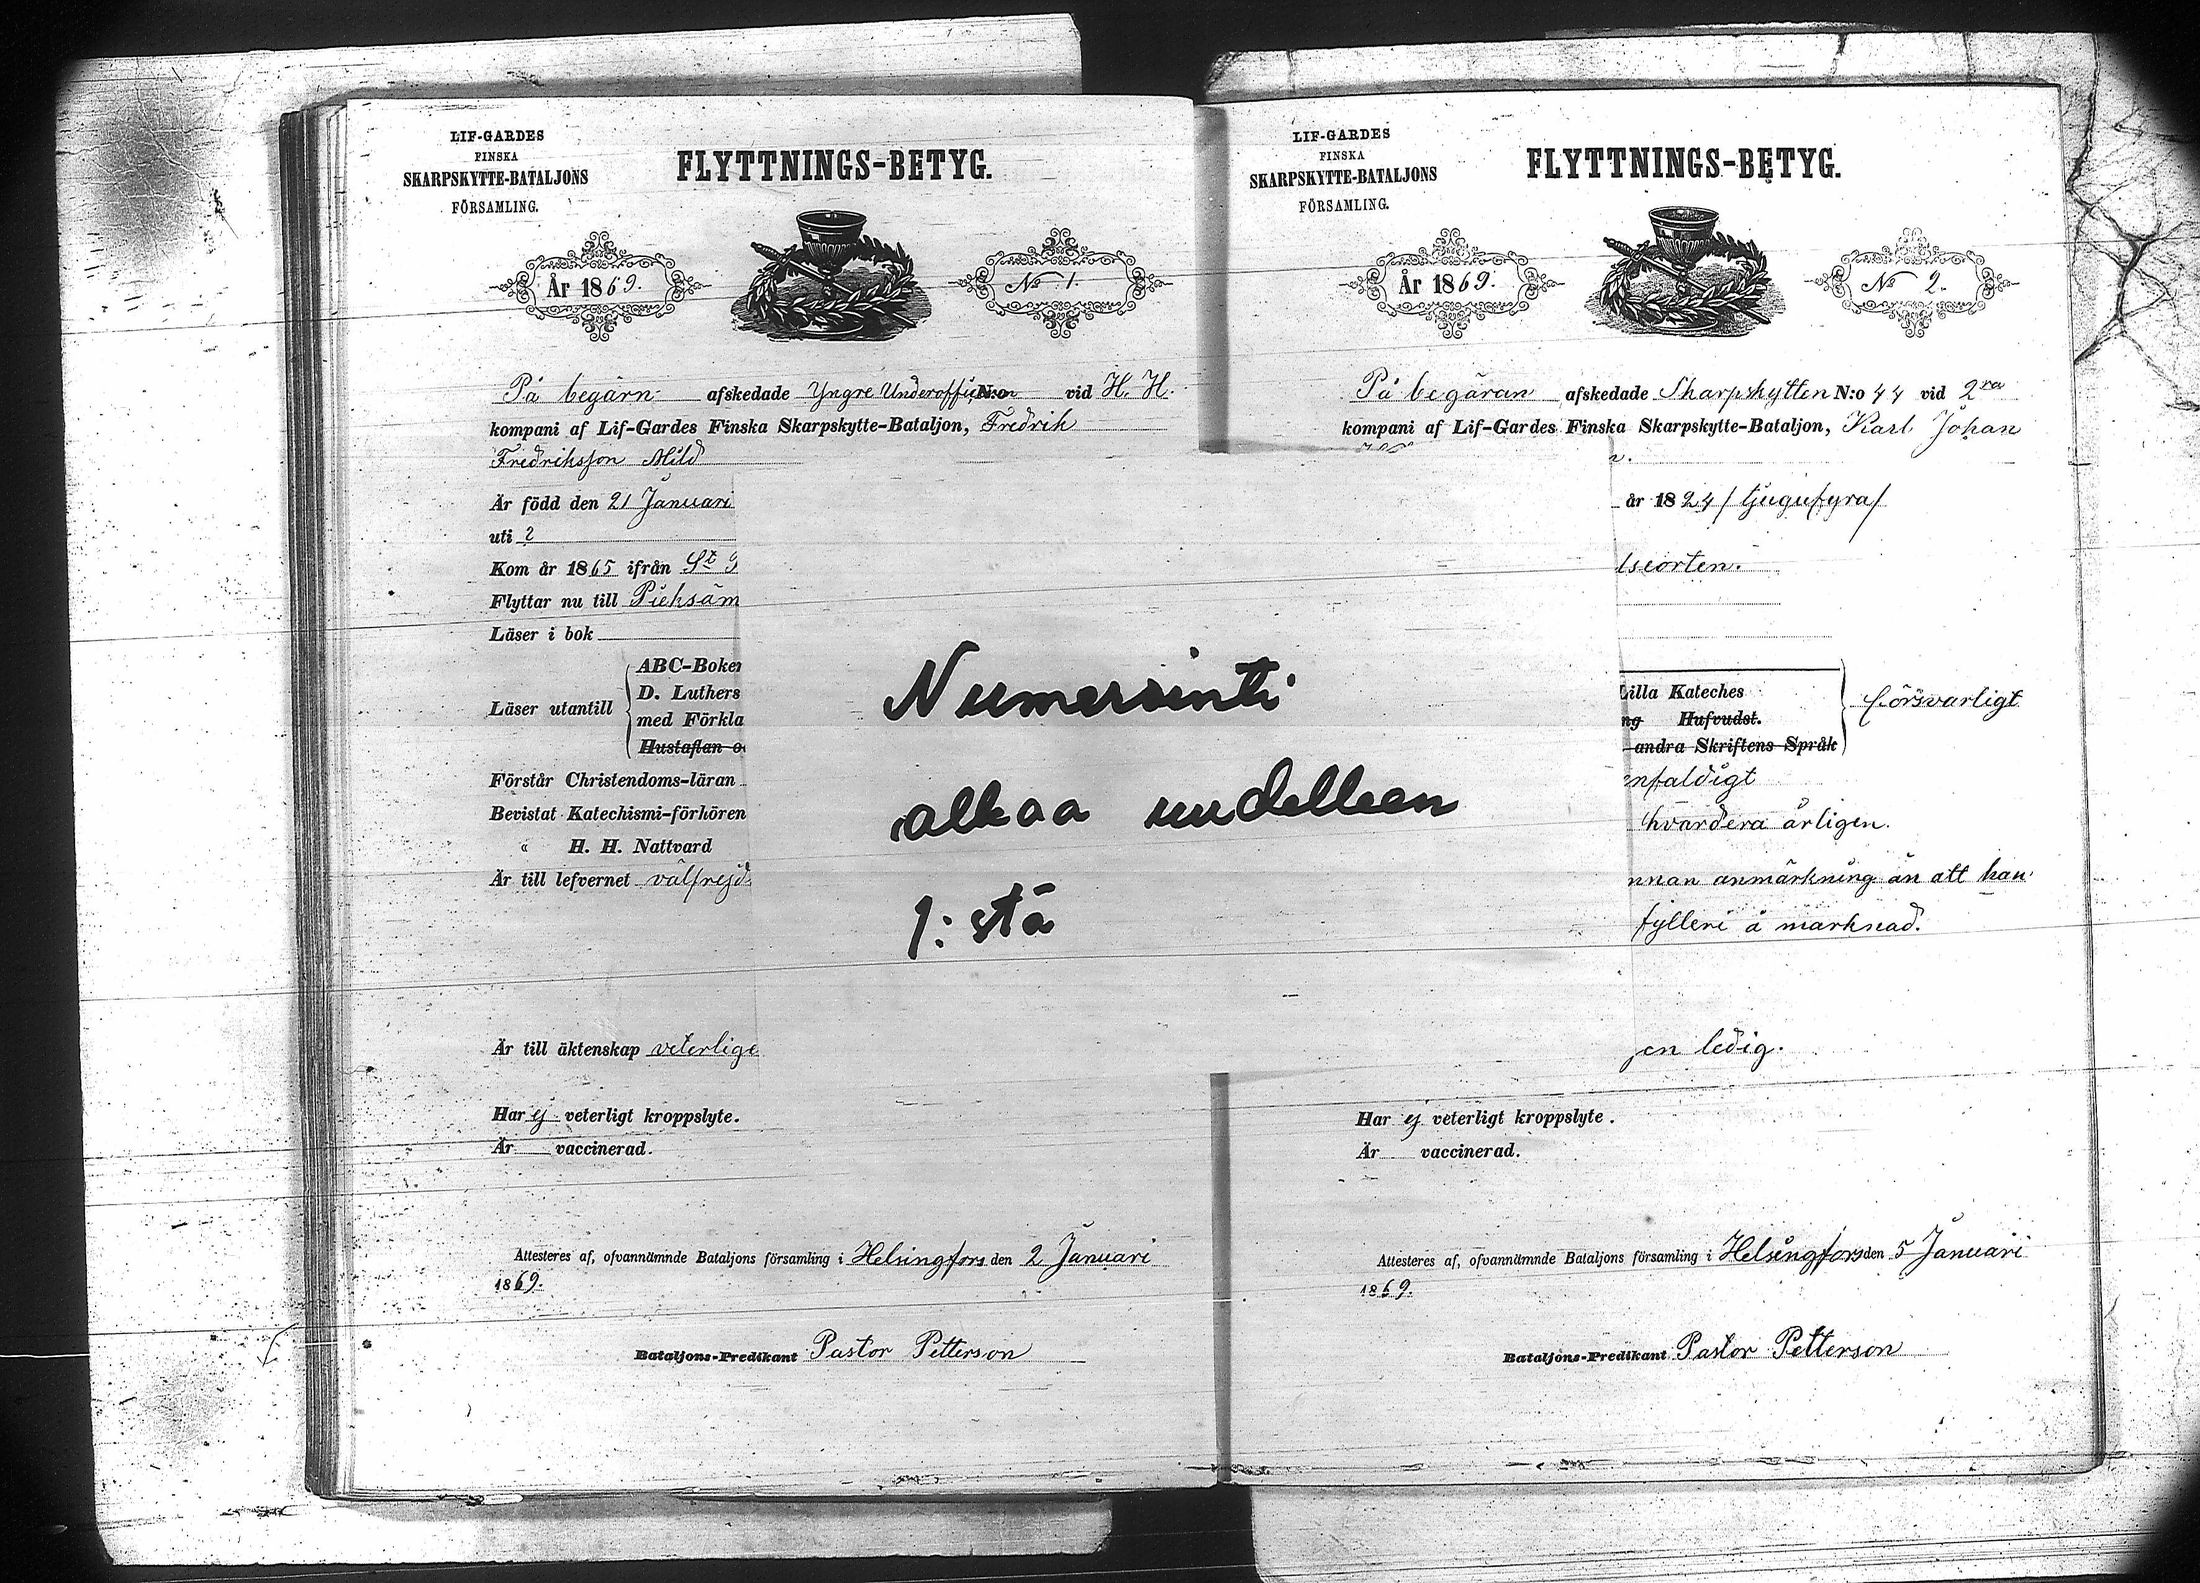 LIF-GARDES
FINSKA
SKARPSKYTTE-BATALJONS
FÖRSAMLING.
FLYTTNINGS-BETYG.
År 1869.
No 1.
På begärn afskedade Yngre Underofficeren N:o vid H. H.
kompani af Lif-Gardes Finska Skarpskytte-Bataljon, Fredrik
Fredriksson Mild
Är född den 21 Januari
uti ?
Kom år 1865 ifrån St
Flyttar nu till Pieksäm
Läser i bok
ABC-Boken
D. Luthers
Läser utantill
med Förkla
Hustaflan o
Förstår Christendoms-läran
Bevistat Katechismi-förhören
" H. H. Nattvard
Är till lefvernet välfrejd
Är till äktenskap veterlige
Har ej veterligt kroppslyte.
Är vaccinerad.
Attesteres af, ofvannämnde Bataljons församling i Helsingfors den 2 Januari
1869.
Bataljons-Predikant Pastor Petterson
Numerointi
alkaa uudelleen
1:stä
LIF-GARDES
FINSKA
SKARPSKYTTE-BATALJONS
FÖRSAMLING.
FLYTTNINGS-BETYG.
År 1869.
No 2.
På begäran afskedade Skarpskytten N:o 44 vid 2ra
kompani af Lif-Gardes Finska Skarpskytte-Bataljon, Karl Johan
år 1824 / tjugufyra /
Lilla Kateches
ng Hufvudst.
försvarligt
andra Skriftens Språk
enfaldigt
hvardera årligen.
nnan anmärkning än att han
fylleri å marknad.
gen ledig.
Har ej veterligt kroppslyte.
Är vaccinerad.
Attesteres af, ofvannämnde Bataljons församling i Helsingfors den 5 Januari
1869.
Bataljons-Predikant Pastor Petterson